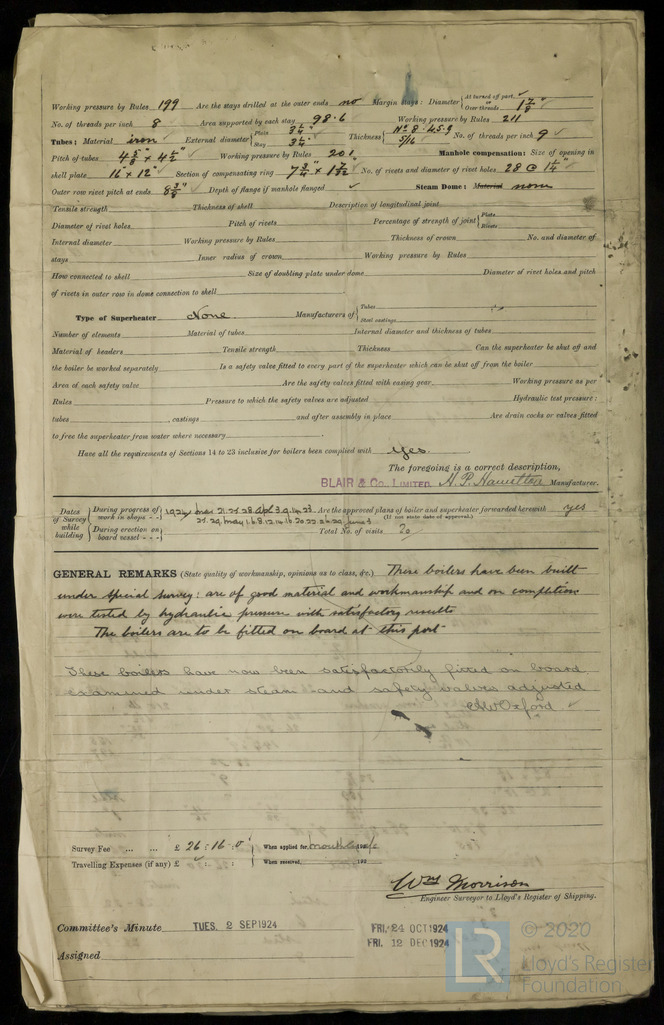 Working pressure by Rules 199 Are the stays drilled at the outer ends no Margin stays: Diameter { At turned off part, or Over threads 1 7/8"
No. of threads per inch 8 Area supported by each stay 98.6 Working pressure by Rules 211
Tubes: Material iron External diameter { Plain 3 1/4" Stay 3 1/4" Thickness { No 8. 45.9 5/16 No. of threads per inch 9
Pitch of tubes 4 5/8 x 4 1/2" Working pressure by Rules 201 Manhole compensation: Size of opening in
shell plate 16 x 12" Section of compensating ring 7 3/4" x 1 7/32" No. of rivets and diameter of rivet holes 28 @ 1 1/4"
Outer row rivet pitch at ends 8 3/8" Depth of flange if manhole flanged Steam Dome: Material none
Tensile strength Thickness of shell Description of longitudinal joint
Diameter of rivet holes Pitch of rivets Percentage of strength of joint { Plate Rivets
Internal diameter Working pressure by Rules Thickness of crown No. and diameter of
stays Inner radius of crown Working pressure by Rules
How connected to shell Size of doubling plate under dome Diameter of rivet holes and pitch
of rivets in outer row in dome connection to shell
Type of Superheater None Manufacturers of { Tubes Steel castings
Number of elements Material of tubes Internal diameter and thickness of tubes
Material of headers Tensile strength Thickness Can the superheater be shut off and
the boiler be worked separately Is a safety valve fitted to every part of the superheater which can be shut off from the boiler
Area of each safety valve Are the safety valves fitted with easing gear Working pressure as per
Rules Pressure to which the safety valves are adjusted Hydraulic test pressure:
tubes , castings and after assembly in place Are drain cocks or valves fitted
to free the superheater from water where necessary
Have all the requirements of Sections 14 to 23 inclusive for boilers been complied with Yes.
The foregoing is a correct description,
BLAIR & Co., LIMITED. H. P. Hamilton Manufacturer.
Dates of Survey while building { During progress of work in shops - - 1924 Mar 21. 25. 28 Apl 3. 9. 14. 23. Are the approved plans of boiler and superheater forwarded herewith yes
(If not state date of approval.)
During erection on board vessel - - - Total No. of visits 20
GENERAL REMARKS (State quality of workmanship, opinions as to class, &c.) These boilers have been built
under special survey: are of good material and workmanship and on completion
were tested by hydraulic pressure with satisfactory results
The boilers are to be fitted on board at this port
These boilers have now been satisfactorily fitted on board
examined under steam and safety valves adjusted
A W Oxford
Survey Fee ... ... £ 26 : 16 . 0 When applied for, 192
Travelling Expenses (if any) £ : : When received, 192
Wm Morrison
Engineer Surveyor to Lloyd's Register of Shipping.
Committee's Minute TUES. 2 SEP 1924 FRI. 24 OCT 1924
FRI. 12 DEC 1924
Assigned
LR © 2020
Lloyd's Register
Foundation